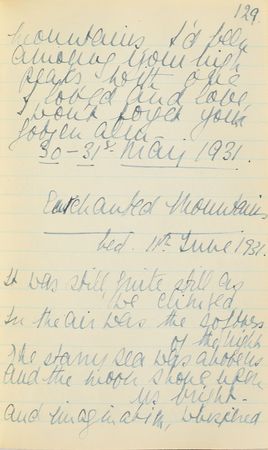 129.
mountains I'd been
among your high
peaks with one
I loved and love,
I won't forget your
30-31st May 1931.
Enchanted Mountains
Wed. 10th June 1931.
It was still quite still as
we climbed
In the air was the softness
of the night
The starry sea was above us
and the moon shone upon
us bright.
and imagination, whispered